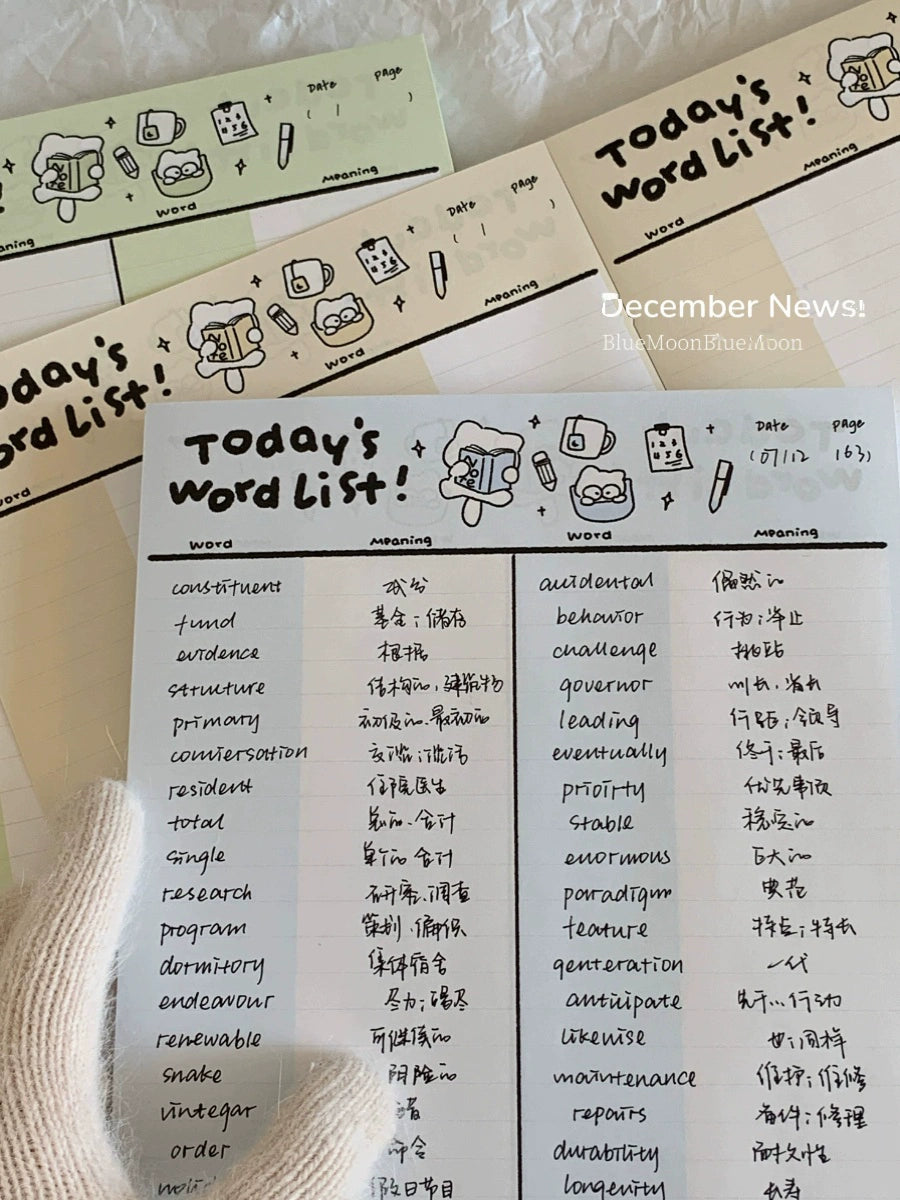 Date page
( / )
Meaning
word
Today's
word List!
Meaning
word
Date page
( / )
Meaning
word
Today's
word List!
word
December News!
BlueMoonBlueMoon
Today's
word List!
Date page
(07/12 163)
word Meaning word Meaning
constituent 成分 accidental 偶然的
fund 基金；储存 behavior 行为；举止
evidence 根据 challenge 挑战
structure 结构的，建筑物 governor 州长，省长
primary 初级的，最初的 leading 行距；领导
conversation 交谈；谈话 eventually 终于；最后
resident 住院医生 priority 优先事项
total 总的，合计 stable 稳定的
single 单个的 合计 enormous 巨大的
research 研究，调查 paradigm 典范
program 策划，偏织 feature 特点；特长
dormitory 集体宿舍 genteration 一代
endeavour 尽力；竭尽 anticipate 先于…行动
renewable 可继续的 likewise 也；同样
snake 阴险的 maintenance 维护；维修
vintegar 醋 repairs 备件；修理
order 命令 durability 耐久性
假日节目 longenity 长寿